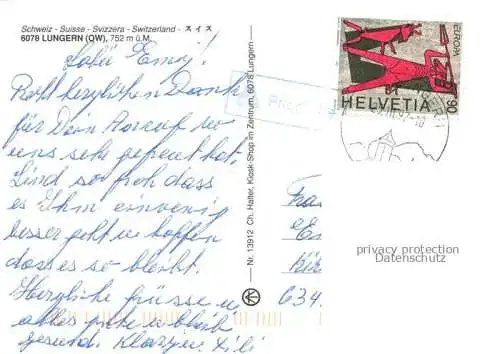 Schweiz - Suisse - Svizzera - Switzerland - スイス
6078 LUNGERN (OW), 752 m ü.M.
Recht herzlichen Dank
für Dein Anruf wo
uns sehr gefreut hat.
Sind so froh dass
es Ihm ein wenig
besser geht u hoffen
dass es so bleibt.
Herzliche Grüsse u
alles gute u bleib
gesund.
Nr. 13912 Ch. Halter, Kiosk-Shop im Zentrum, 6078 Lungern
EUROPA
HELVETIA
90
privacy protection
Datenschutz
634